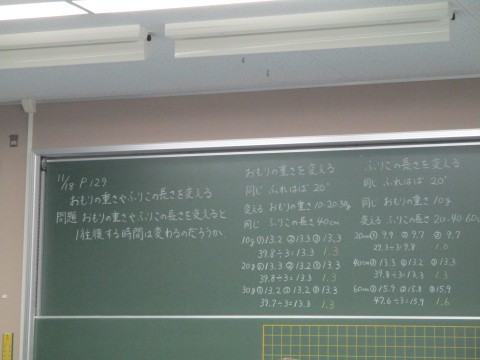 11/18 P129
おもりの重さやふりこの長さを変える
問題 おもりの重さやふりこの長さを変えると
1往復する時間は変わるのだろうか
おもりの重さを変える
同じ ふれはば 20°
変える おもりの重さ 10・20・30g
同じ ふりこの長さ 40cm
10g ①13.2 ②13.3 ③13.3
39.8÷3=13.3 1.3
20g ①13.3 ②13.2 ③13.3
39.8÷3=13.3 1.3
30g ①13.2 ②13.2 ③13.3
39.7÷3=13.3 1.3
ふりこの長さを変える
同じ ふれはば 20°
同じ おもりの重さ 10g
変える ふりこの長さ 20・40・60cm
20cm ① 9.9 ② 9.7 ③ 9.7
29.3÷3=9.8 1.0
40cm ①13.3 ②13.2 ③13.3
39.8÷3=13.3 1.3
60cm ①15.9 ②15.8 ③15.9
47.6÷3=15.9 1.6